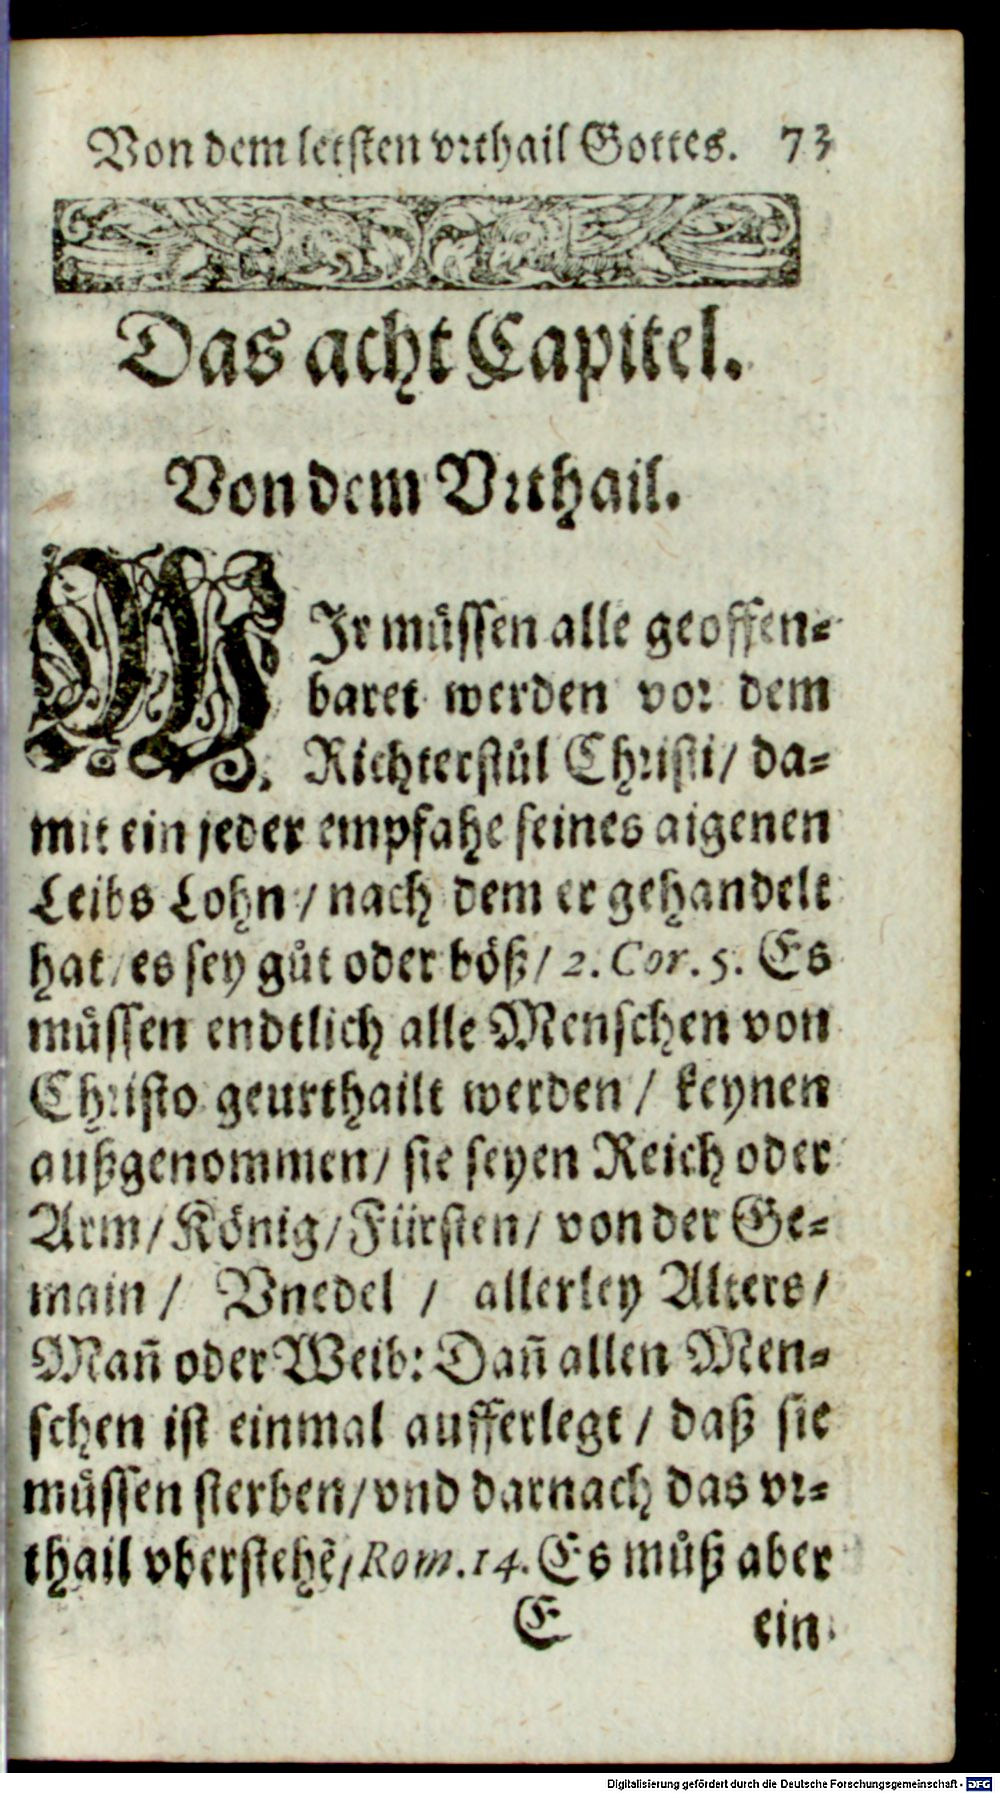 Von dem letsten vrthail Gottes. 73
Das acht Capitel.
Von dem Vrthail.
WIr müssen alle geoffen-
baret werden vor dem
Richterstůl Christi/ da-
mit ein jeder empfahe seines aigenen
Leibs Lohn/ nach dem er gehandelt
hat/ es sey gůt oder böß/ 2. Cor. 5. Es
müssen endtlich alle Menschen von
Christo geurthailt werden/ keynen
außgenommen/ sie seyen Reich oder
Arm/ König/ Fürsten/ von der Ge-
main/ Vnedel/ allerley Alters/
Mañ oder Weib: Dañ allen Men-
schen ist einmal aufferlegt/ daß sie
müssen sterben/ vnd darnach das vr-
thail vberstehẽ/ Rom. 14. Es můß aber
E ein
Digitalisierung gefördert durch die Deutsche Forschungsgemeinschaft - DFG